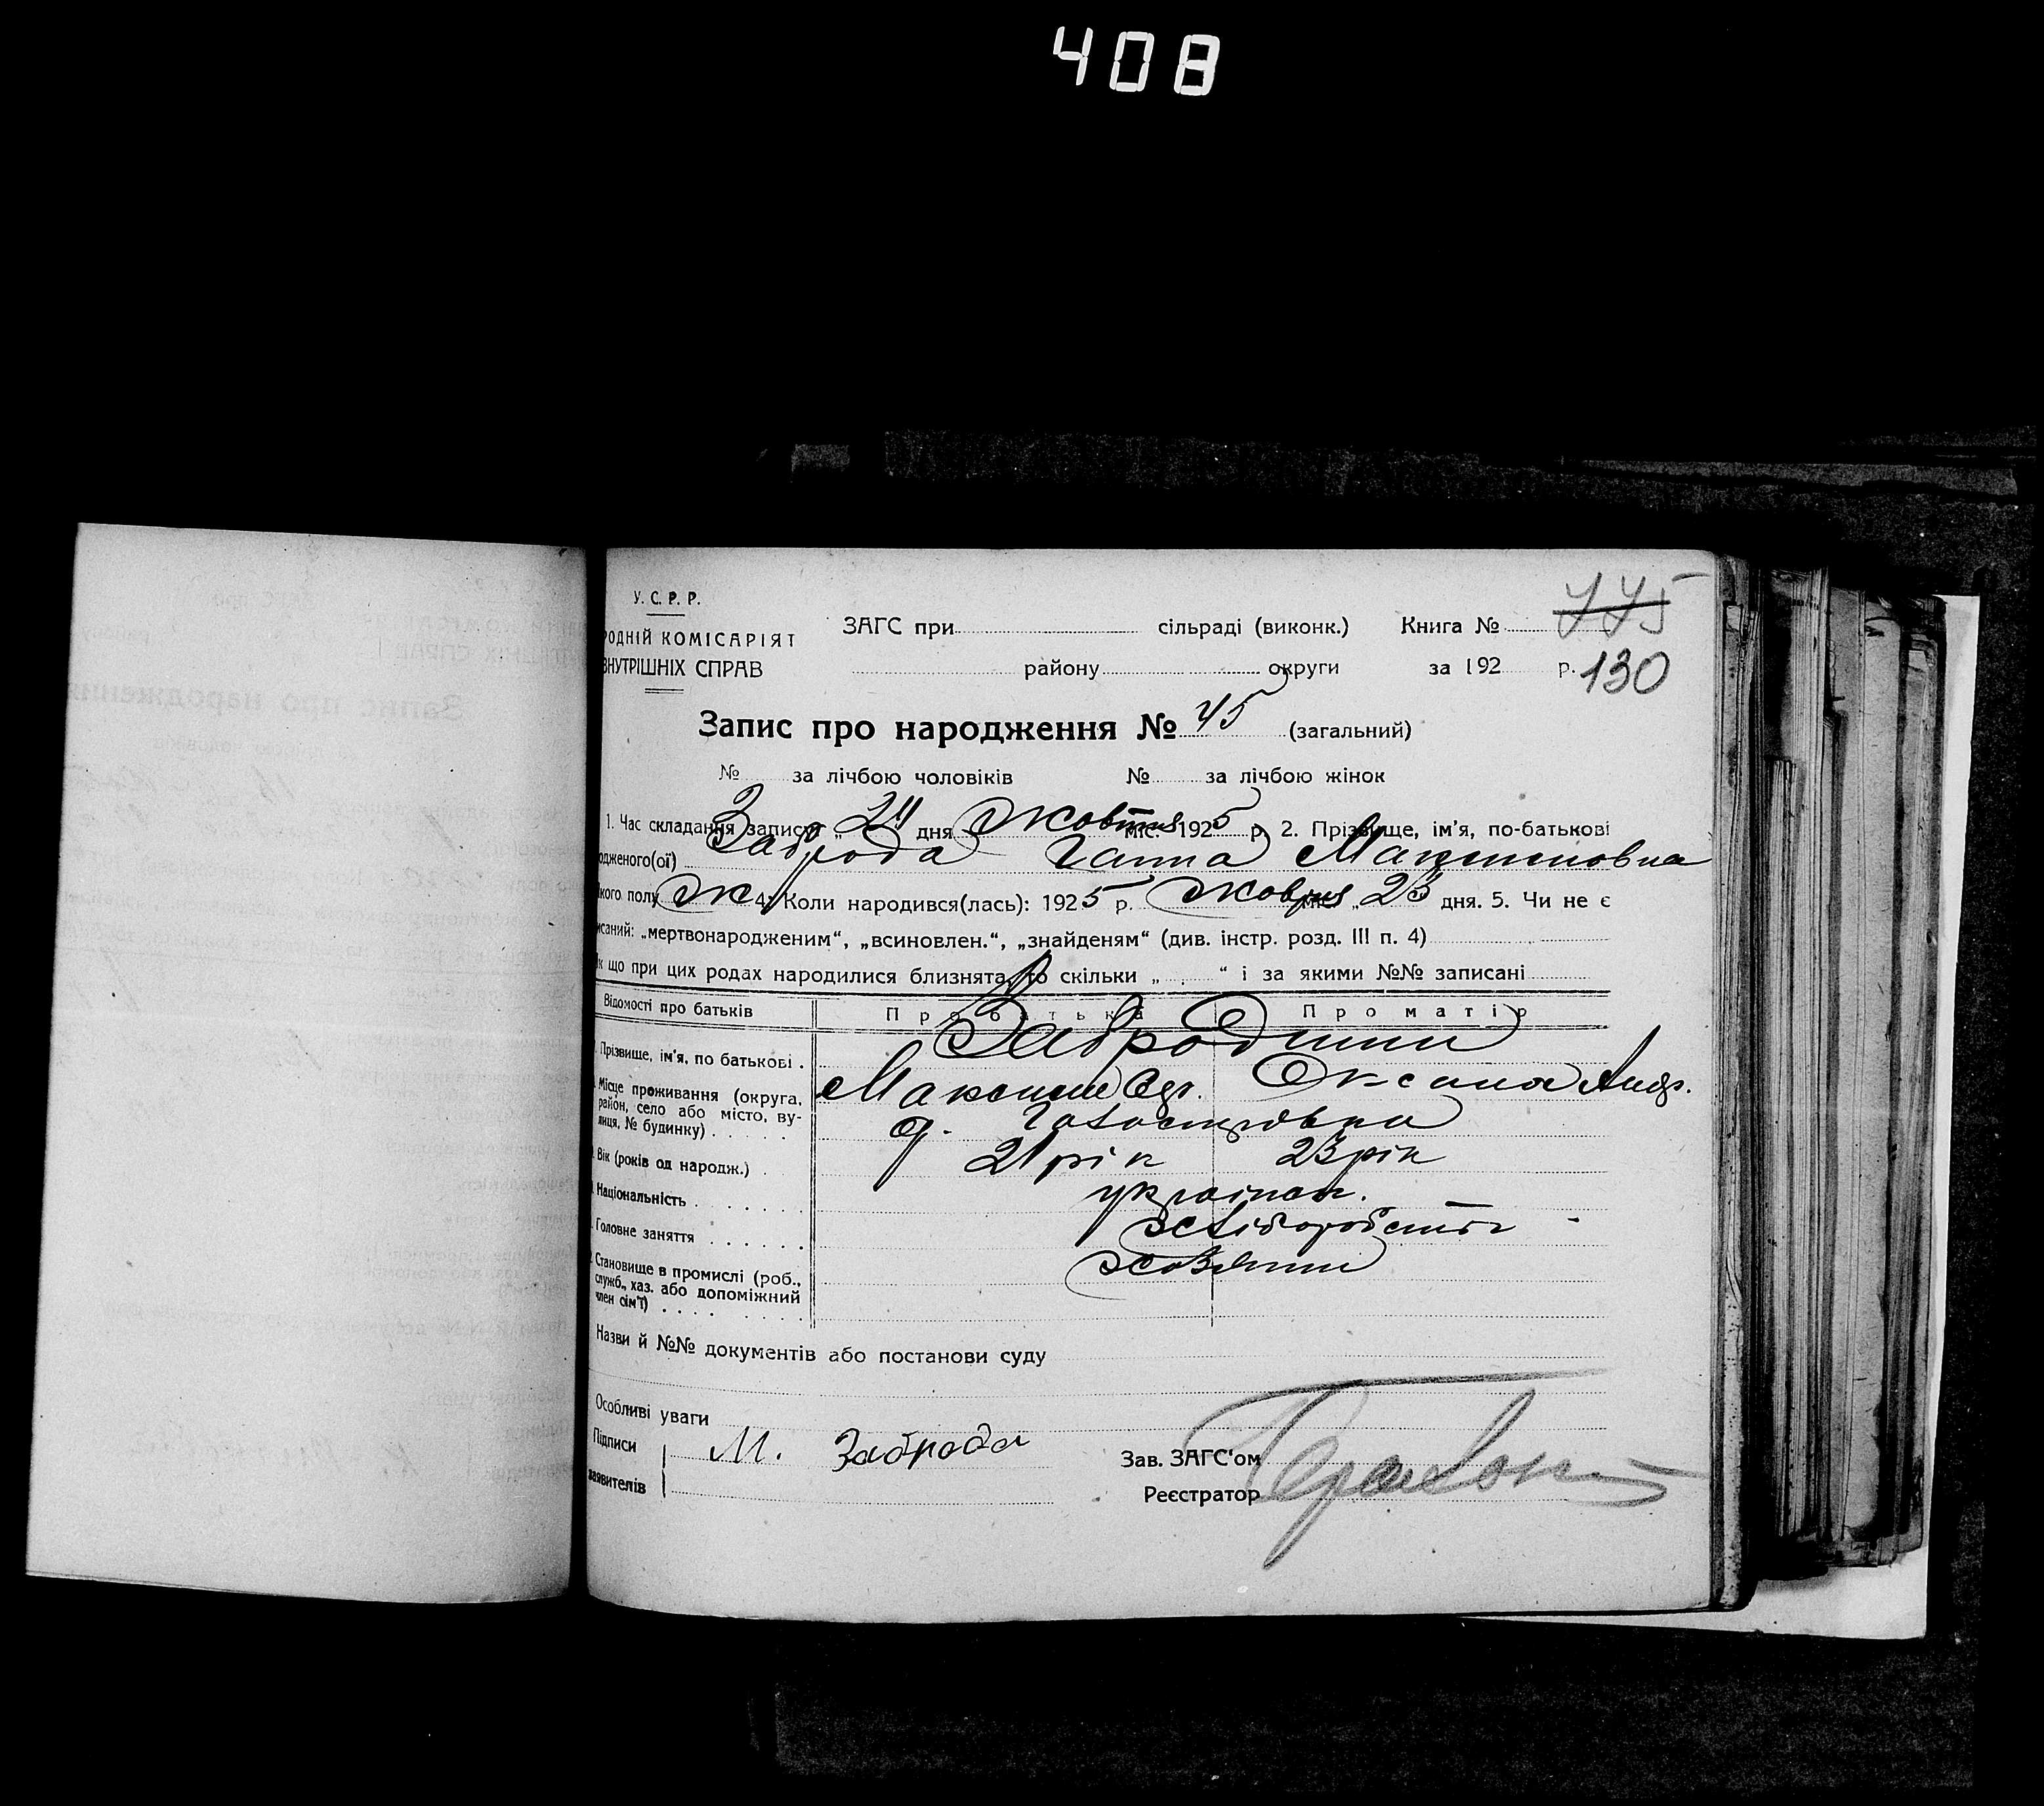 408
У. С. Р. Р.
РОДНІЙ КОМІСАРІЯТ
ВНУТРІШНІХ СПРАВ
ЗАГС при сільраді (виконк.) Книга №
району округи за 192 р. 130
Запис про народження № 45 (загальний)
№ за лічбою чоловіків № за лічбою жінок
1. Час складання запису „ 24 дня Жовтня міс. 1925 р. 2. Прізвище, ім'я, по-батькові
одженого(ої) Заброда Ганна Максимовна
якого полу ж 4. Коли народився(лась): 1925 р. жовтня міс. „ 23 дня. 5. Чи не є
исаний: „мертвонародженим“, „всиновлен.“, „знайденям“ (див. інстр. розд. III п. 4)
к що при цих родах народилися близнята, то скільки „ “ і за якими №№ записані
Відомості про батьків Про батька Про матір
Забродини
Прізвище, ім'я, по батькові . Максим Оксана Андр.
Місце проживання (округа, район, село або місто, вулиця, № будинку)
Вік (років од народж.) . 21 рік 23 рік
Національність україн.
Головне заняття хліборобство
Становище в промислі (роб., служб., хаз. або допоміжний член сім'ї) хозяини
Назви й №№ документів або постанови суду
Особливі уваги
Підписи М. Заброда Зав. ЗАГС'ом
заявителів Реєстратор